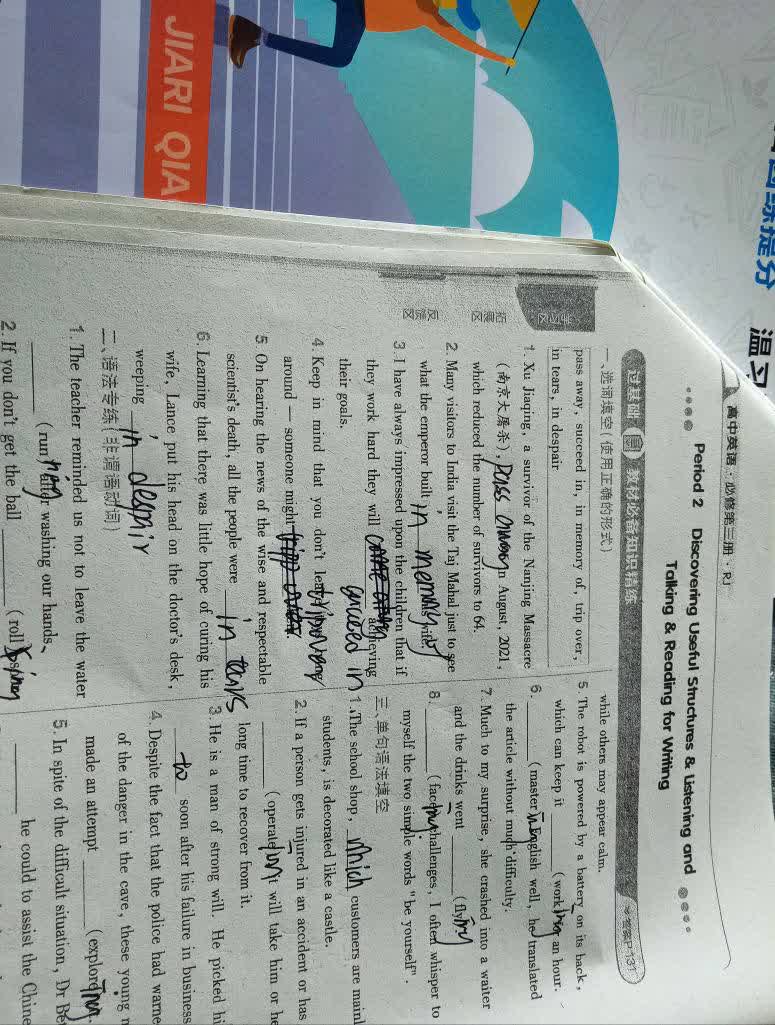 JIARI QIA
温习
高中英语·必修第三册·RJ
Period 2 Discovering Useful Structures & Listening and
Talking & Reading for Writing
过基础 教材必备知识精练
答案P131
一、选词填空(使用正确的形式)
pass away, succeed in, in memory of, trip over,
in tears, in despair
1. Xu Jiaqing, a survivor of the Nanjing Massacre
(南京大屠杀), pass away in August, 2021,
which reduced the number of survivors to 64.
2. Many visitors to India visit the Taj Mahal just to see
what the emperor built in memory of his wife.
3. I have always impressed upon the children that if
they work hard they will succeed in achieving
their goals.
4. Keep in mind that you don't leave
around — someone might trip over
5. On hearing the news of the wise and respectable
scientist's death, all the people were in tears
6. Learning that there was little hope of curing his
wife, Lance put his head on the doctor's desk,
weeping in despair
二、语法专练(非谓语动词)
1. The teacher reminded us not to leave the water
(run) while washing our hands.
2. If you don't get the ball (roll)
while others may appear calm.
5. The robot is powered by a battery on its back,
which can keep it (work) for an hour.
6. (master) English well, he translated
the article without much difficulty.
7. Much to my surprise, she crashed into a waiter
and the drinks went (fly)
8. (face) challenges, I often whisper to
myself the two simple words "be yourself".
三、单句语法填空
1. The school shop, which customers are mainl
students, is decorated like a castle.
2. If a person gets injured in an accident or has
(operate) it will take him or he
long time to recover from it.
3. He is a man of strong will. He picked hi
to soon after his failure in business
4. Despite the fact that the police had warne
of the danger in the cave, these young
made an attempt (explore)
5. In spite of the difficult situation, Dr Be
he could to assist the Chine